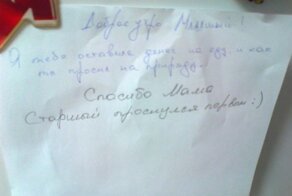 Доброе утро, Младший!
Я тебе оставила денег на еду и как
ты просил на природу.
Спасибо Мама
Старший проснулся первым :)